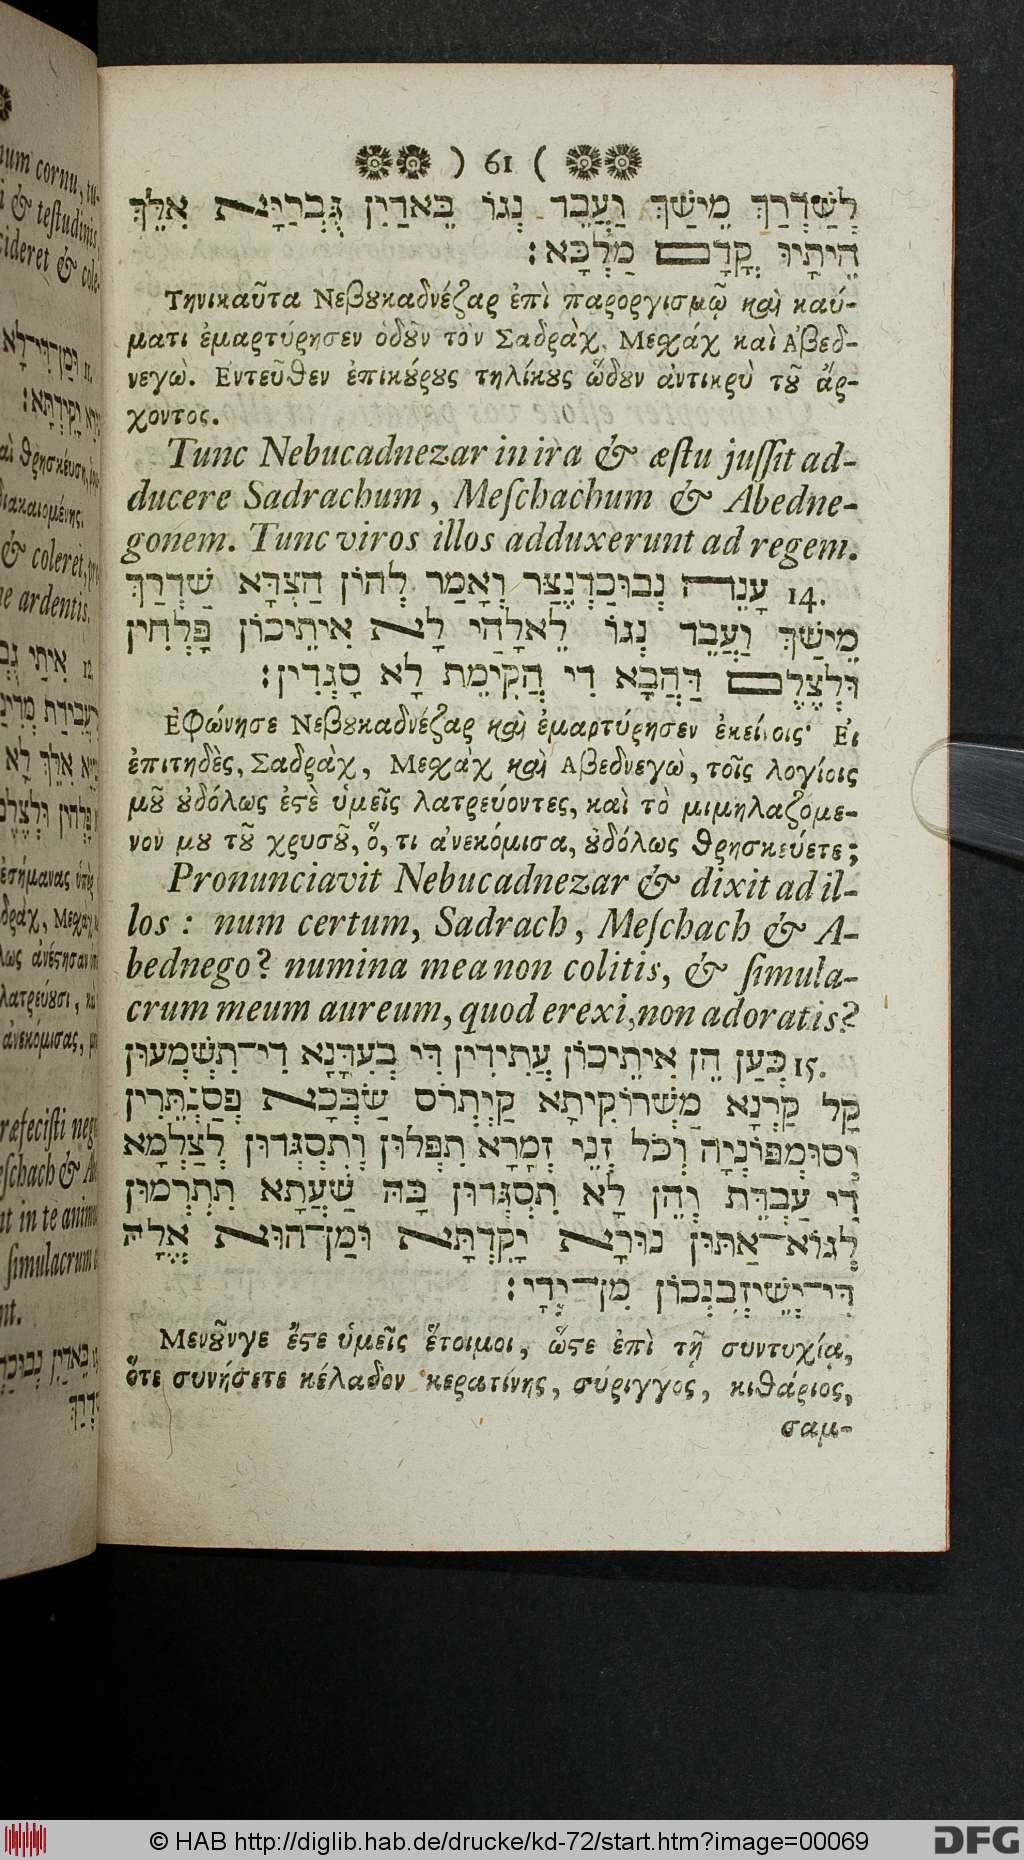 ) 61 (
לְשַׁדְרַךְ מֵישַׁךְ וַעֲבֵד נְגוֹ בֵּאדַיִן גֻּבְרַיָּא אִלֵּךְ
הֵיתָיוּ קֳדָם מַלְכָּא׃
Τηνικαῦτα Νεβȣκαδνέζαρ ἐπὶ παροργισμῷ καὶ καύ-
ματι ἐμαρτύρησεν ὁδοῦν τὸν Σαδρὰχ, Μεσχάχ καὶ Ἀβεδ-
νεγὼ. Εντεῦθεν ἐπικȣ́ρȣς τηλίκȣς ὦδυν ἀντικρὺ τȣ͂ ἄρ-
χοντος.
Tunc Nebucadnezar in ira & æſtu juſſit ad-
ducere Sadrachum, Meſchachum & Abedne-
gonem. Tunc viros illos adduxerunt ad regem.
14. עָנֵה נְבוּכַדְנֶצַּר וְאָמַר לְהוֹן הַצְדָּא שַׁדְרַךְ
מֵישַׁךְ וַעֲבֵד נְגוֹ לֵאלָהַי לָא אִיתֵיכוֹן פָּלְחִין
וּלְצֶלֶם דַּהֲבָא דִּי הֲקֵימֶת לָא סָגְדִין׃
Ἐφώνησε Νεβȣκαδνέζαρ καὶ ἐμαρτύρησεν ἐκείνοις· Εἰ
ἐπιτηδὲς, Σαδρὰχ, Μεσχὰχ καὶ Ἀβεδνεγὼ, τοῖς λογίοις
μȣ͂ ȣ̓δόλως ἐϛὲ ὑμεῖς λατρεύοντες, καὶ τὸ μιμηλαζόμε-
νον μȣ τȣ͂ χρυσȣ͂, ὅ, τι ἀνεκόμισα, ȣ̓δόλως θρησκεύετε;
Pronunciavit Nebucadnezar & dixit ad il-
los : num certum, Sadrach, Meſchach & A-
bednego? numina mea non colitis, & ſimula-
crum meum aureum, quod erexi, non adoratis?
15. כְּעַן הֵן אִיתֵיכוֹן עֲתִידִין דִּי בְעִדָּנָא דִּי־תִשְׁמְעוּן
קָל קַרְנָא מַשְׁרוֹקִיתָא קַיְתְרֹס שַׂבְּכָא פְּסַנְתֵּרִין
וְסוּמְפּוֹנְיָה וְכֹל זְנֵי זְמָרָא תִּפְּלוּן וְתִסְגְּדוּן לְצַלְמָא
דִי עַבְדֵת וְהֵן לָא תִסְגְּדוּן בַּהּ שַׁעֲתָא תִתְרְמוּן
לְגוֹא־אַתּוּן נוּרָא יָקִדְתָּא וּמַן־הוּא אֱלָהּ
דִּי־יְשֵׁיזְבִנְכוֹן מִן־יְדָי׃
Μενȣ͂νγε ἔϛε ὑμεῖς ἕτοιμοι, ὥϛε ἐπὶ τῇ συντυχίᾳ,
ὅτε συνήσετε κέλαδον κερατίνης, σύριγγος, κιθάριος,
σαμ-
© HAB http://diglib.hab.de/drucke/kd-72/start.htm?image=00069
DFG